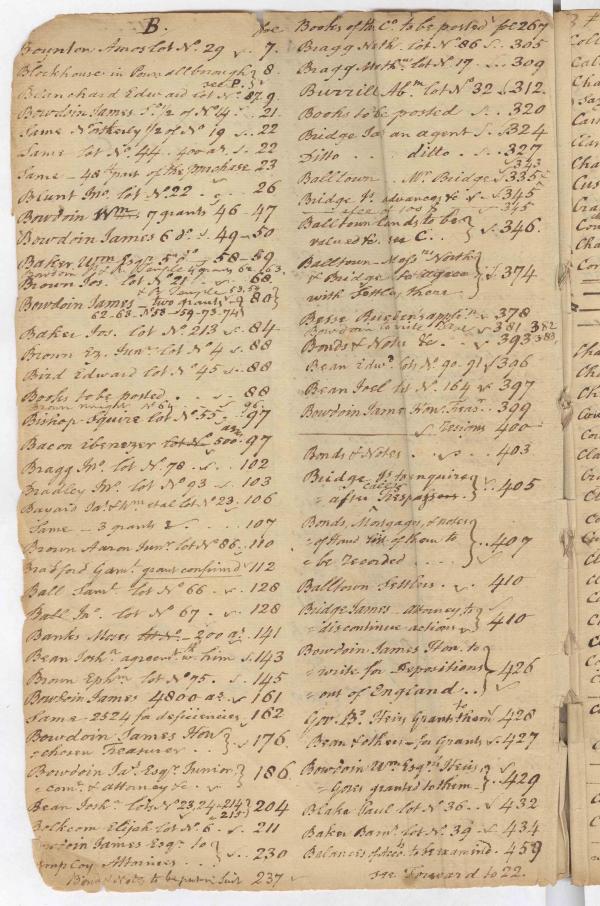 B.
Boynton Amos lot No. 29 7.
Blockhouse in Pownallborough 8
see P.
Blanchard Edward lot No. 87. 9
Bowdoin James Sº. 1/2 of No. 4 21
Same Northerly 1/2 of No. 19 22
Same Lot No. 44. 400 as. 22
Same 48th part of the purchase 23
Blunt Jno. lot No. 22 26
Bowdoin Wm. 7 grants 46-47
Bowdoin James 6 do. 49-50
Baker Wm. Esqr. 5 do. 58-59
Brown Jos. lot No. 68
Bowdoin James two grants 80
62-63 No. 53-54-73-74
Baker Jos. lot No. 213 84
Brown Junr. lot No. 4 88
Bird Edward lot No. 45 88
Books to be posted 88
Bishop Squire lot No. 55 97
Bacon Ebenezer lot No. 500 as. 97
Bragg Jno. lot No. 78 102
Bradley Jno. lot No. 93 103
Bayard Ja. & Wm. et al lot No. 23 106
Same - 3 grants 107
Brown Aaron Junr. lot No. 86 110
Bradford Gaml. grant confirmd 112
Ball Saml. lot No. 66 128
Ball Jno. lot No. 67 128
Banks Moses 200 as. 141
Bean Joshª. agreemt. wth. him 143
Brown Ephm. lot No. 75. 145
Bowdoin James 4800 as. 161
Same 2524 for deficiencies 162
Bowdoin James Hon
chosen Treasurer 176
Bowdoin Jas. Esqr. Junior
comt. & attorney &c 186
Bean Joshª. lots No. 23,24-214
215 204
Bolkcom Elijah lot No. 6 211
Bowdoin James Esqr. to
employ Attornies 230
Bonds & Notes to be put in Suit 237
Books of the Co. to be posted foe 267
Bragg Nath. Lot No. 86 305
Bragg lot No. 17. 309
Burrill Abm. lot No. 32 312
Books to be posted 320
Bridge Jas. an agent 324
Ditto ditto 327
343
Balltown Mr. Bridge 335
Bridge Js. advances &c 345
345
Balltown lands to be
valued &c. see C. 346.
Balltown Messrs. North
& Bridge to agree
with Settlrs there 374
Besse Reuben 378
381 382
Bonds & Notes &c. 393 383
Bean Edwd. lots No. 90-91 396
Bean Joel lot No. 164 397
Bowdoin James Hon. Treasr. 399
resigns 400
Bonds & Notes 403
Bridge Js. to enquire
after Trespassers 405
Bonds, Mortgages, & notes
of Hand list of them to
be recorded 407
Balltown Settlers 410
Bridge James attorney to
discontinue actions 410
Bowdoin James Hon. to
write for Depositions
out of England 426
Gov. Bs. Heirs Grant to them 428
Bean & others for Grants 427
Bowdoin Wm. Esqrs. Heirs
Gores granted to them 429
Blake Paul lot No. 36 432
Baker Barns. lot No. 39 434
Balances of Accts. to be examind. 459
see forward to 22.